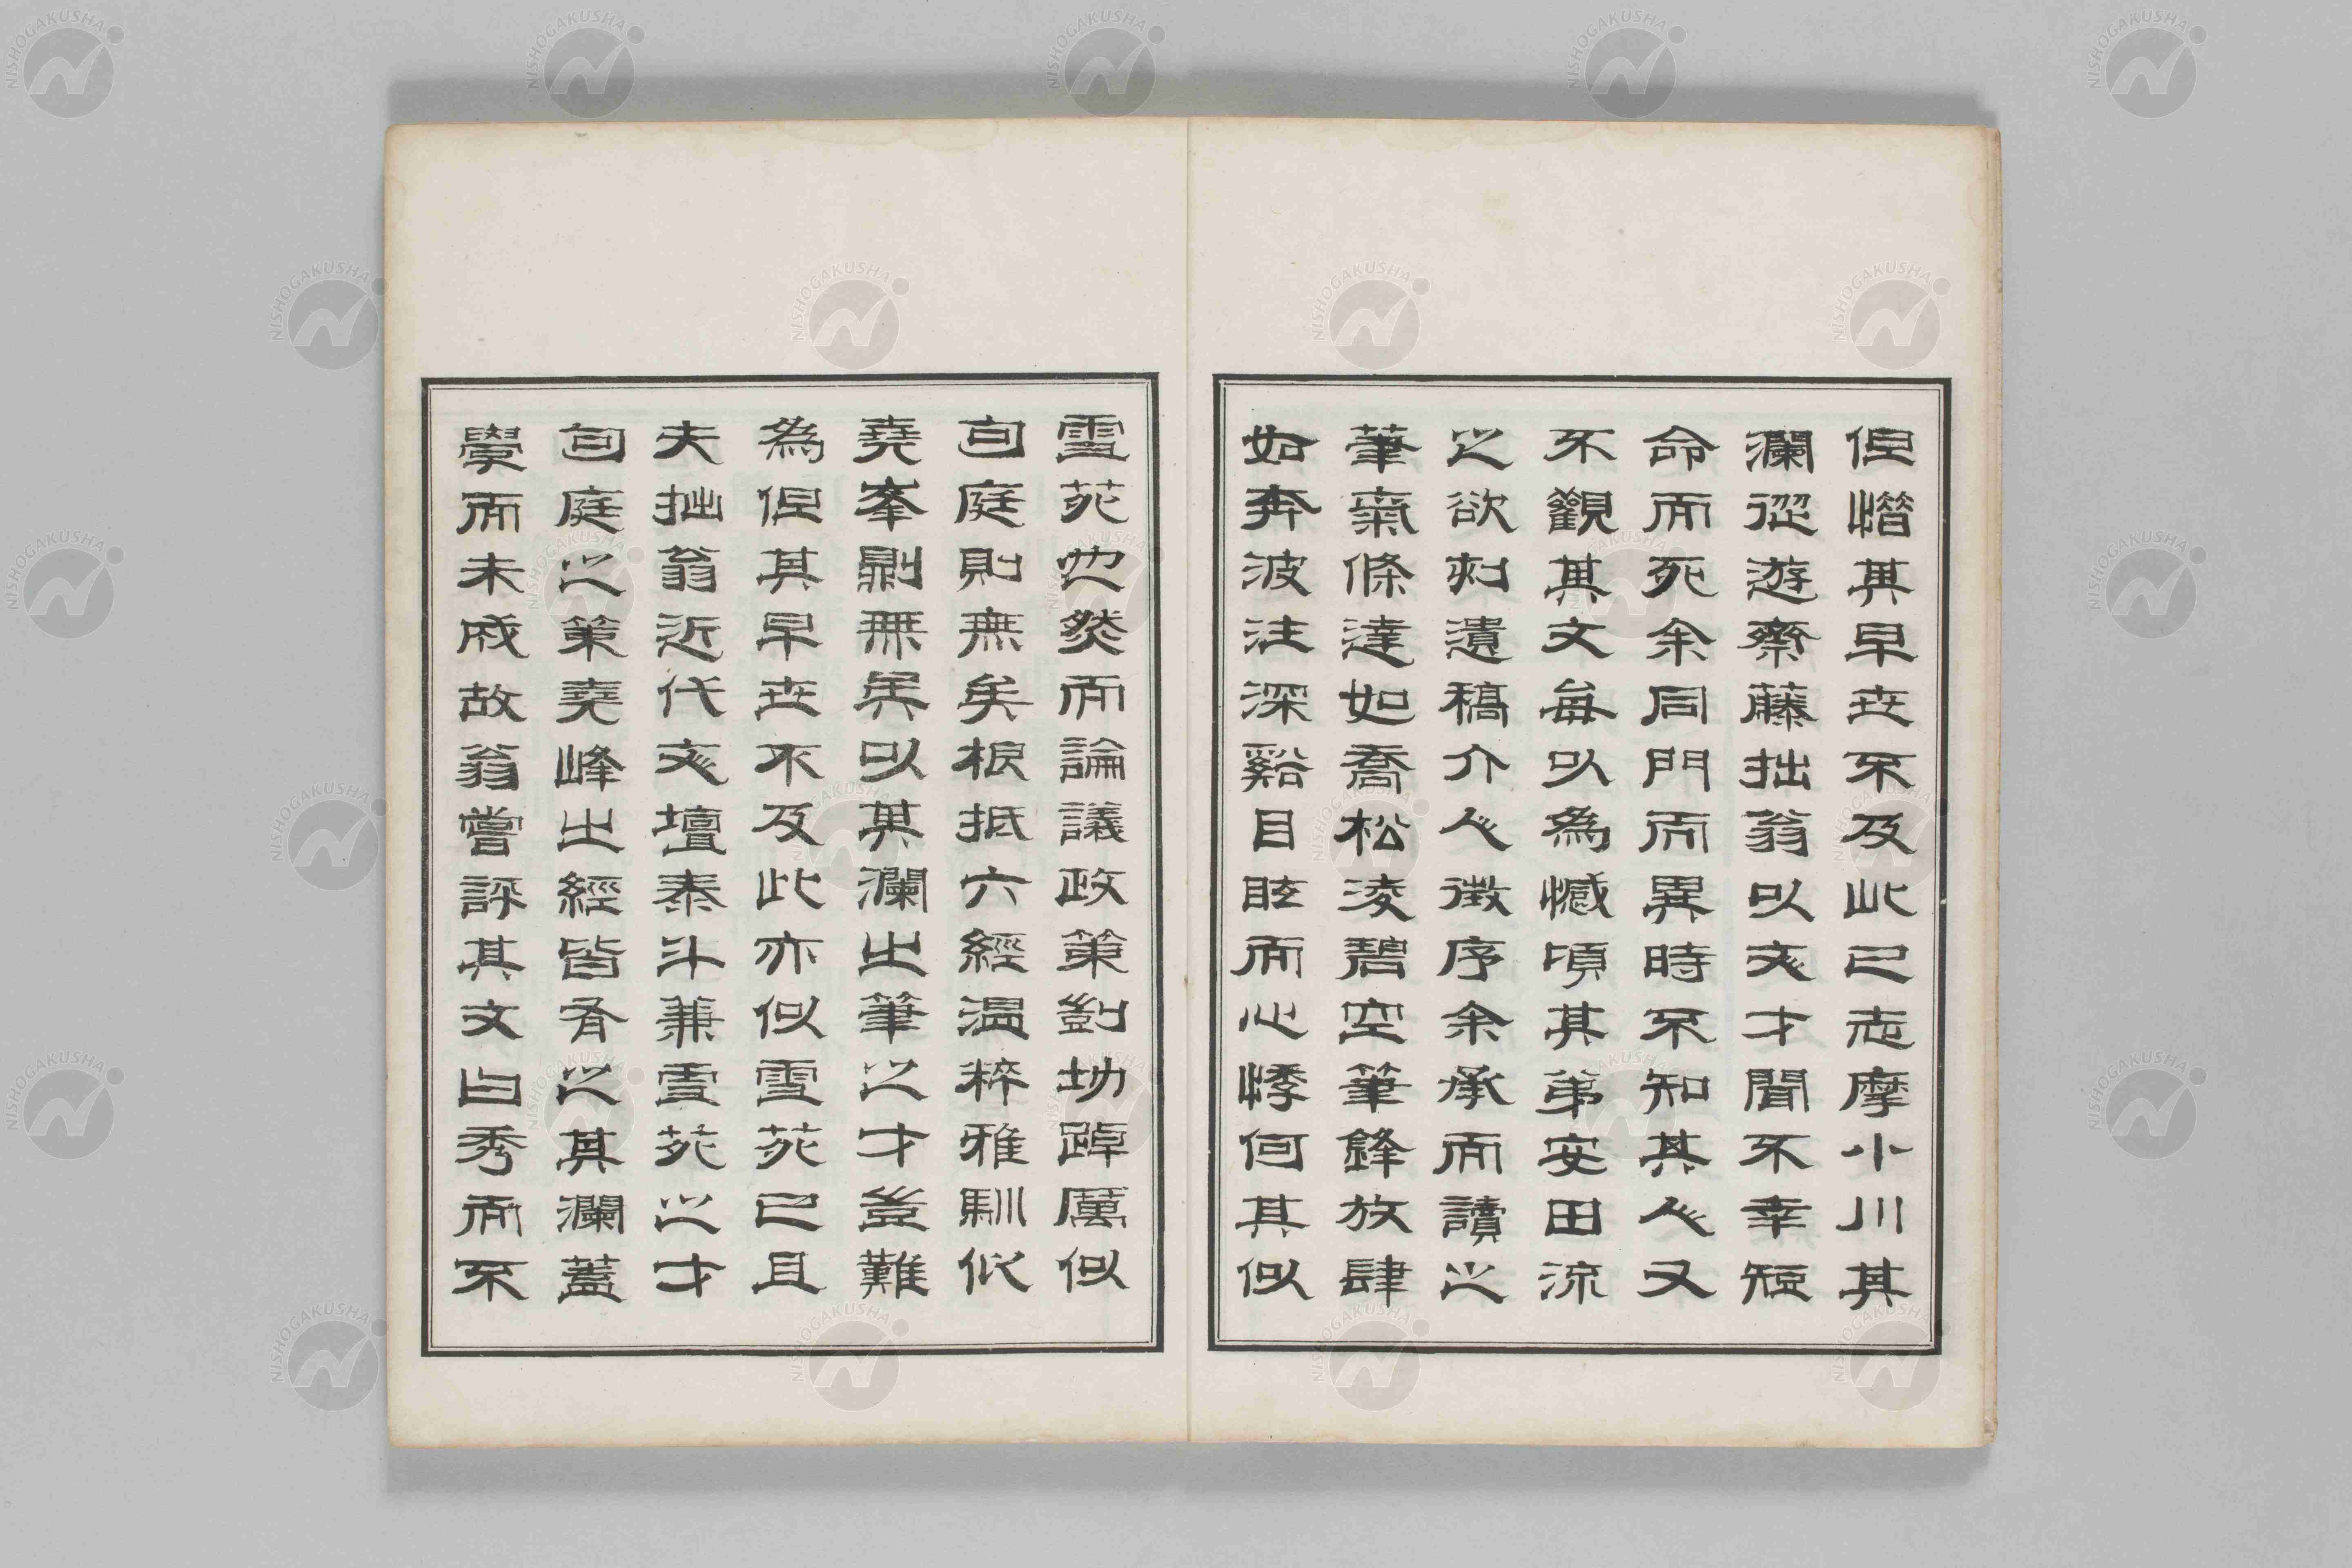 但惜其早世不及此已志摩小川其
瀾從遊齋藤拙翁以文才聞不幸短
命而死余同門而異時不知其人又
不觀其文每以為憾頃其弟安田流
之欲刻遺稿介人徵序余承而讀之
筆氣條達如喬松凌碧空筆鋒放肆
如奔波注深谿目眩而心悸何其似
雪苑也然而論議政策剴切踔厲似
訇庭則無矣根抵六經溫粹雅馴似
堯峯則無矣以其瀾之筆之才豈難
為但其早世不及此亦似雪苑已且
夫拙翁近代文壇泰斗兼雪苑之才
訇庭之策堯峰之經皆有之其瀾蓋
學而未成故翁嘗評其文曰秀而不
NISHOGAKUSHA